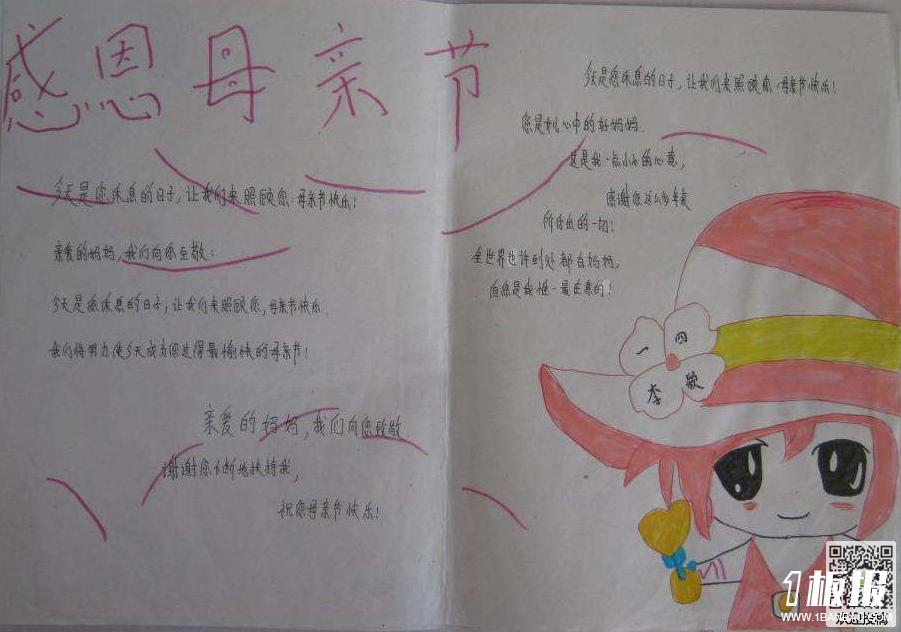 感恩母亲节
今天是您休息的日子,让我们来照顾您.母亲节快乐!
亲爱的妈妈,我们向你至敬:
今天是您休息的日子,让我们来照顾您,母亲节快乐.
我们将努力使今天成为您过得最愉快的母亲节!
亲爱的妈妈,我们向您致敬
谢谢您不断地扶持我,
祝您母亲节快乐!
今天是您休息的日子,让我们来照顾您.母亲节快乐!
您是我心中的好妈妈.
这是我一点小小的心意,
感谢您这么多年来
所付出的一切!
全世界也许到处都有妈妈,
但您是我唯一最在意的!
一四
李颖
1板报
WWW.1BANBAO.COM
欢迎投稿